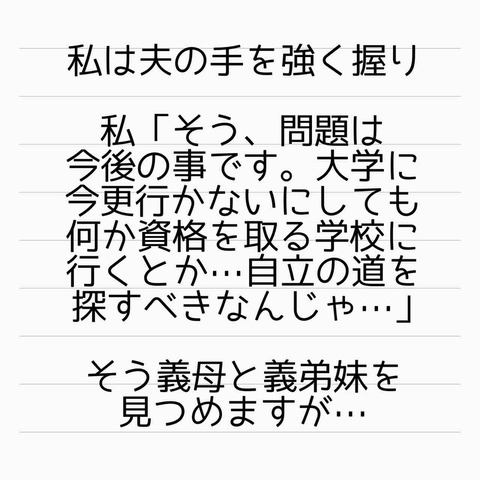 私は夫の手を強く握り
私「そう、問題は
今後の事です。大学に
今更行かないにしても
何か資格を取る学校に
行くとか…自立の道を
探すべきなんじゃ…」
そう義母と義弟妹を
見つめますが…